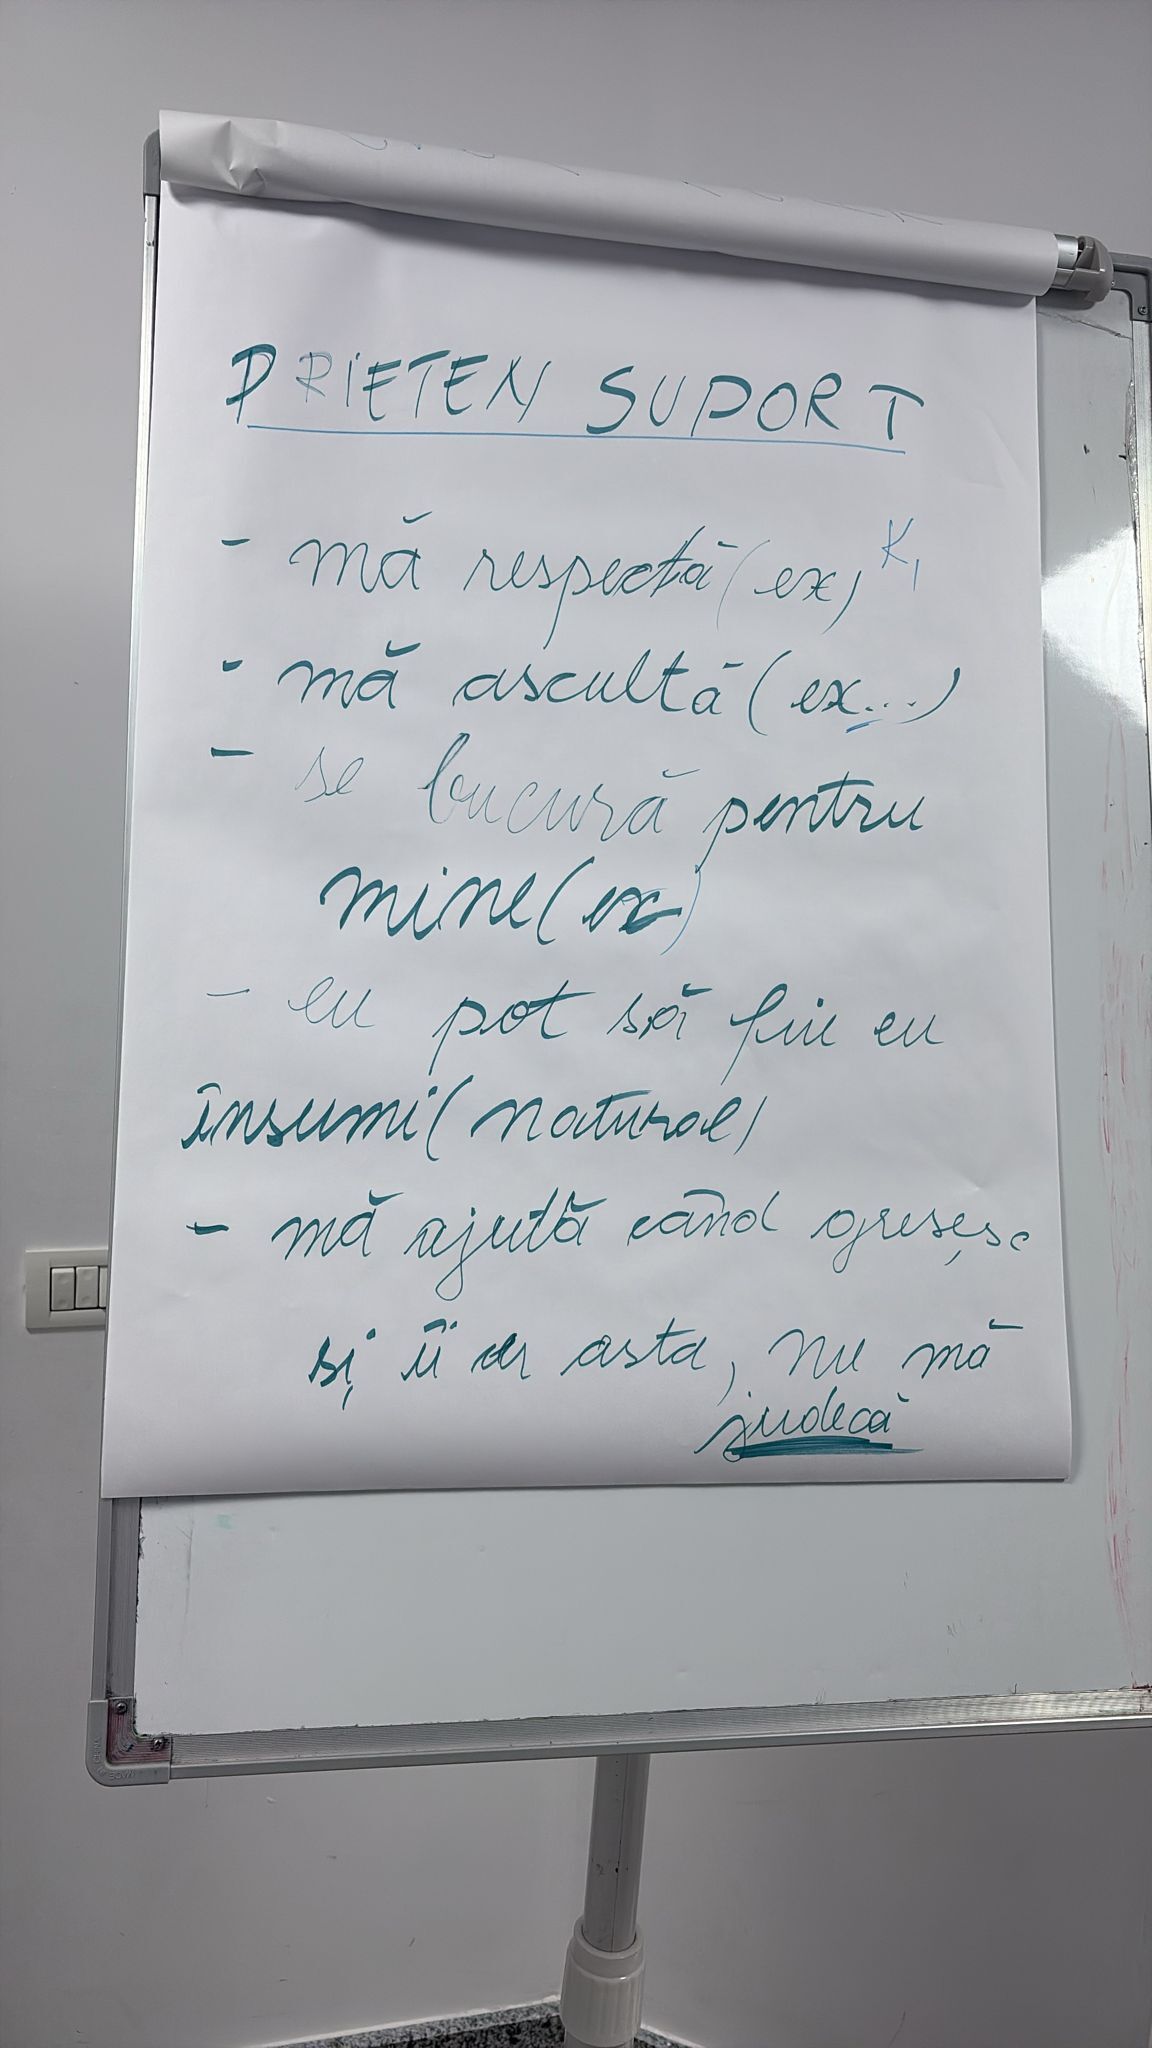 PRIETEN SUPORT
- mă respectă (ex) K1
- mă ascultă (ex...)
- se bucură pentru
mine (ex)
- eu pot să fiu eu
însumi (natural)
- mă ajută când greșesc
și îi cer asta, nu mă
judecă